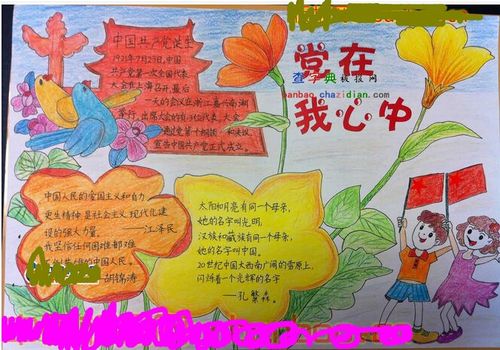 中国共产党诞生
1921年7月23日,中国
共产党第一次全国代表
大会在上海召开,最后
一天的会议在浙江嘉兴南湖
举行。出席大会的有13位代表,大会
通过党第个纲领和决议,
宣告中国共产党正式成立。
党在
我心中
查字典 板报网
banbao.chazidian.com
中国人民的爱国主义和自力
更生精神是社会主义现代化建
设的强大力量。
——江泽民
我坚信任何困难都难
的中国人民。
胡锦涛
太阳和月亮有同一个母亲,
她的名字叫光明,
汉族和藏族有同一个母亲,
她的名字叫中国。
20世纪中国大西南广阔的雪原上,
闪烁着一个光辉的名字
——孔繁森。